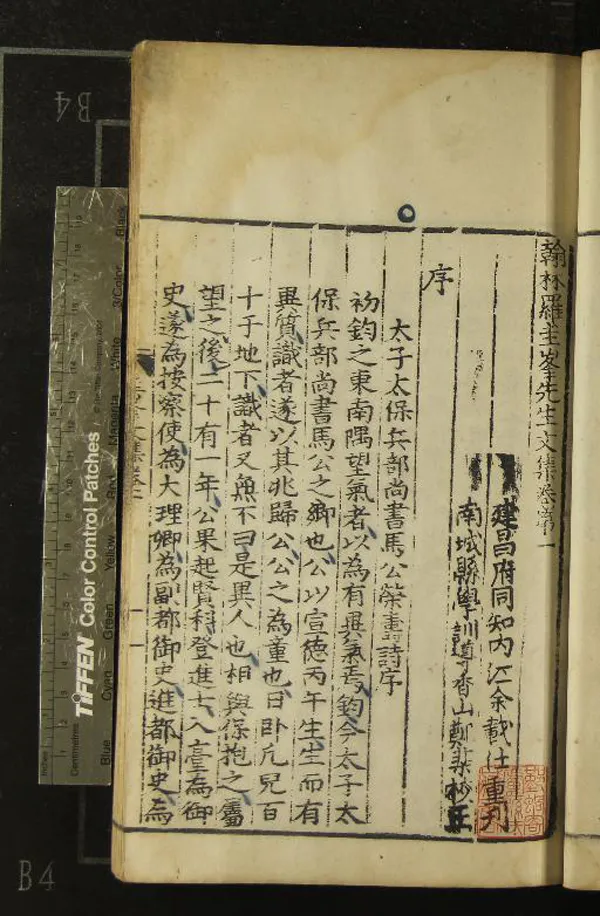 翰林羅圭峯先生文集卷第一
建昌府同知內江余載仕重刋
南城縣學訓導香山鄭
序
太子太保兵部尚書馬公榮壽詩序
初鈞之東南隅望氣者以為有異氣焉鈞今太子太
保兵部尚書馬公之鄉也公以宣德丙午生生而有
異質識者遂以其兆歸公公之為童也日卧凢兒百
十于地下識者又無不曰是異人也相與保抱之
望之後二十有一年公果起賢科登進士入臺為御
史遂為按察使為大理卿為副都御史進都御史為
TIFFEN Color Control Patches
Blue
Cyan
Green
Yellow
Red
Magenta
White
3/Color
Black
Inches
Centimetres
B4
B4